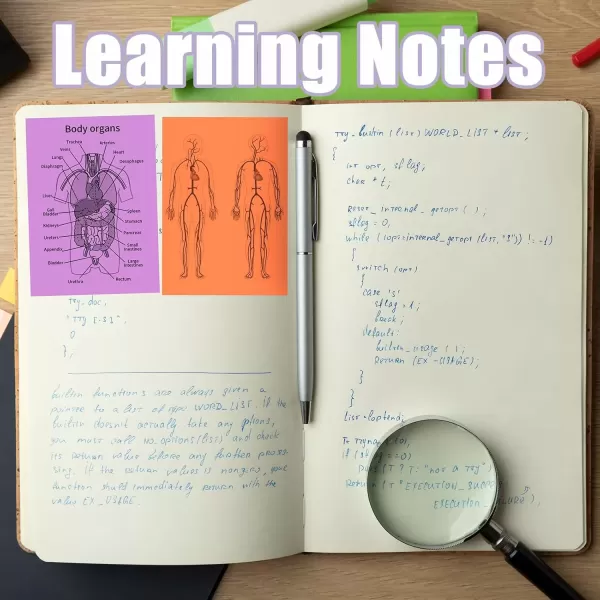 Learning Notes
Body organs
Trachea
Veins
Lungs
Diaphragm
Liver
Gall
Bladder
Kidneys
Ureters
Appendix
Bladder
Urethra
Arteries
Heart
Oesophagus
Spleen
Stomach
Pancreas
Small
Intestines
Large
Intestines
Rectum
try_doc,
0
};
builtin functions are always given a
pointer to a list of type WORD_LIST. If the
builtin doesn't actually take any options,
you must call no_options(list) and check
its return value before any further
If the return values is nonzero, your
function should immediately return with the
value EX_USAGE.
(list) WORD_LIST * list;
{
int opt, sflag;
char * t;
reset_internal_getopt ( );
sflag = 0;
while ((opt=internal_getopt (list, "s")) != -1)
{
switch (opt)
{
case 's'
sflag = 1;
default:
builtin_usage ( );
return (EX_USAGE);
}
}
list = loptend;
"not a tty")
return (t